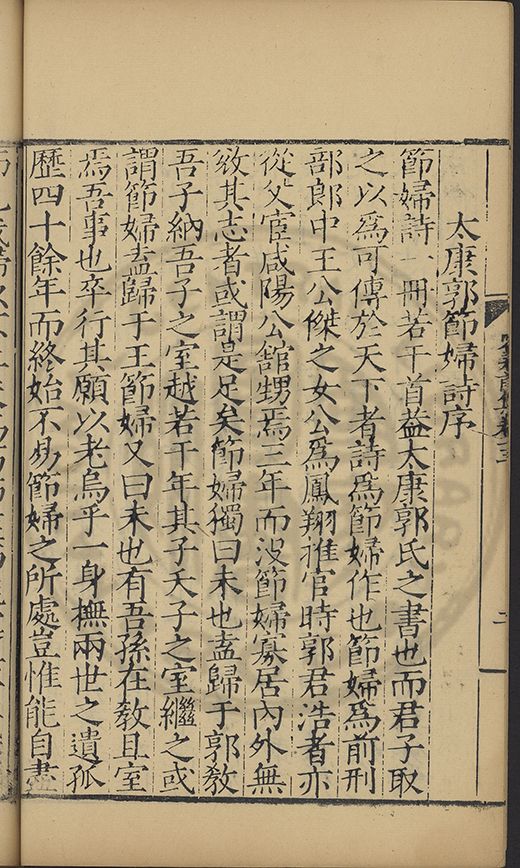 太康郭節婦詩序
節婦詩一冊若干首葢太康郭氏之書也而君子取
之以爲可傳於天下者詩爲節婦作也節婦爲前刑
部郎中王公傑之女公爲鳳翔推官時郭君浩者亦
從父宦咸陽公舘甥焉三年而没節婦寡居内外無
效其志者或謂是足矣節婦獨曰未也盍歸于郭教
吾子納吾子之室越若干年其子夭子之室繼之或
謂節婦盍歸于王節婦又曰未也有吾孫在教且室
焉吾事也卒行其願以老烏乎一身撫兩世之遺孤
歷四十餘年而終始不易節婦之所處豈惟能自盡
卷三
二